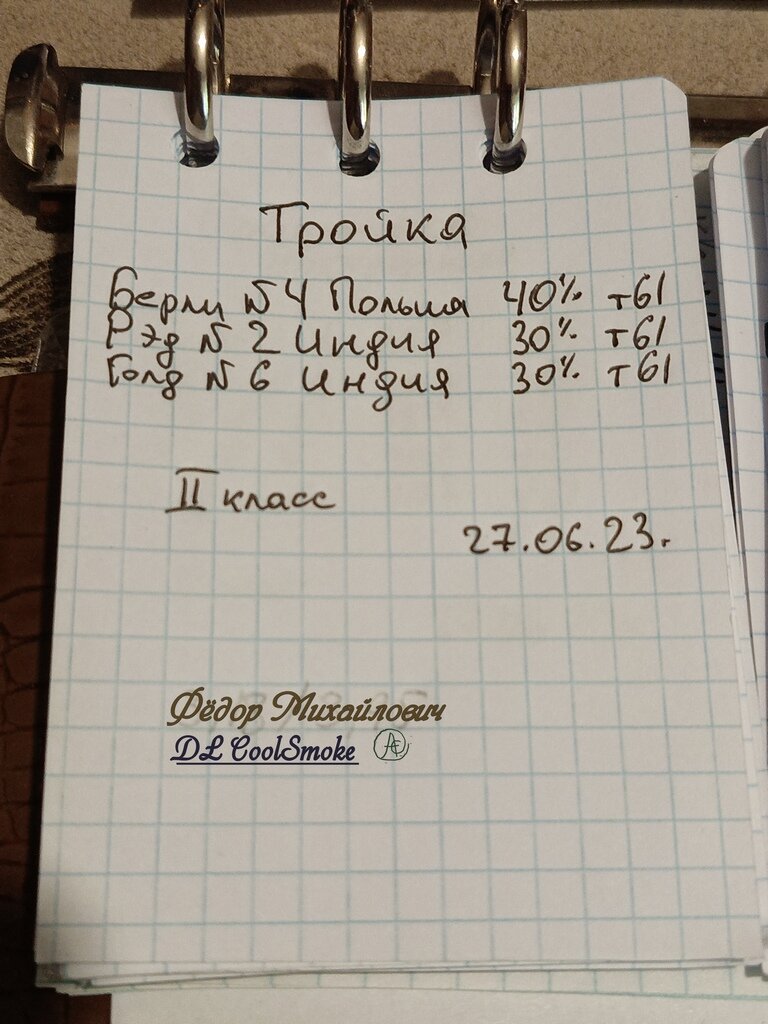 Тройка
Берли N 4 Польша 40% т61
Рэд N 2 Индия 30% т61
Голд N 6 Индия 30% т61
II класс
27.06.23.
Фёдор Михайлович
DL CoolSmoke